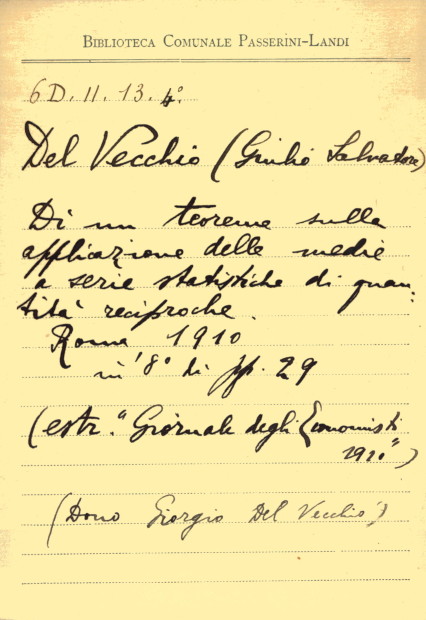 BIBLIOTECA COMUNALE PASSERINI-LANDI
6 D. II. 13. 4°.
Del Vecchio (Giulio Salvatore)
Di un teorema sulla
applicazione delle medie
a serie statistiche di quan-
tità reciproche.
Roma 1910
in 8° di pp. 29
(estr. "Giornale degli Economisti
1910")
(Dono Giorgio Del Vecchio)